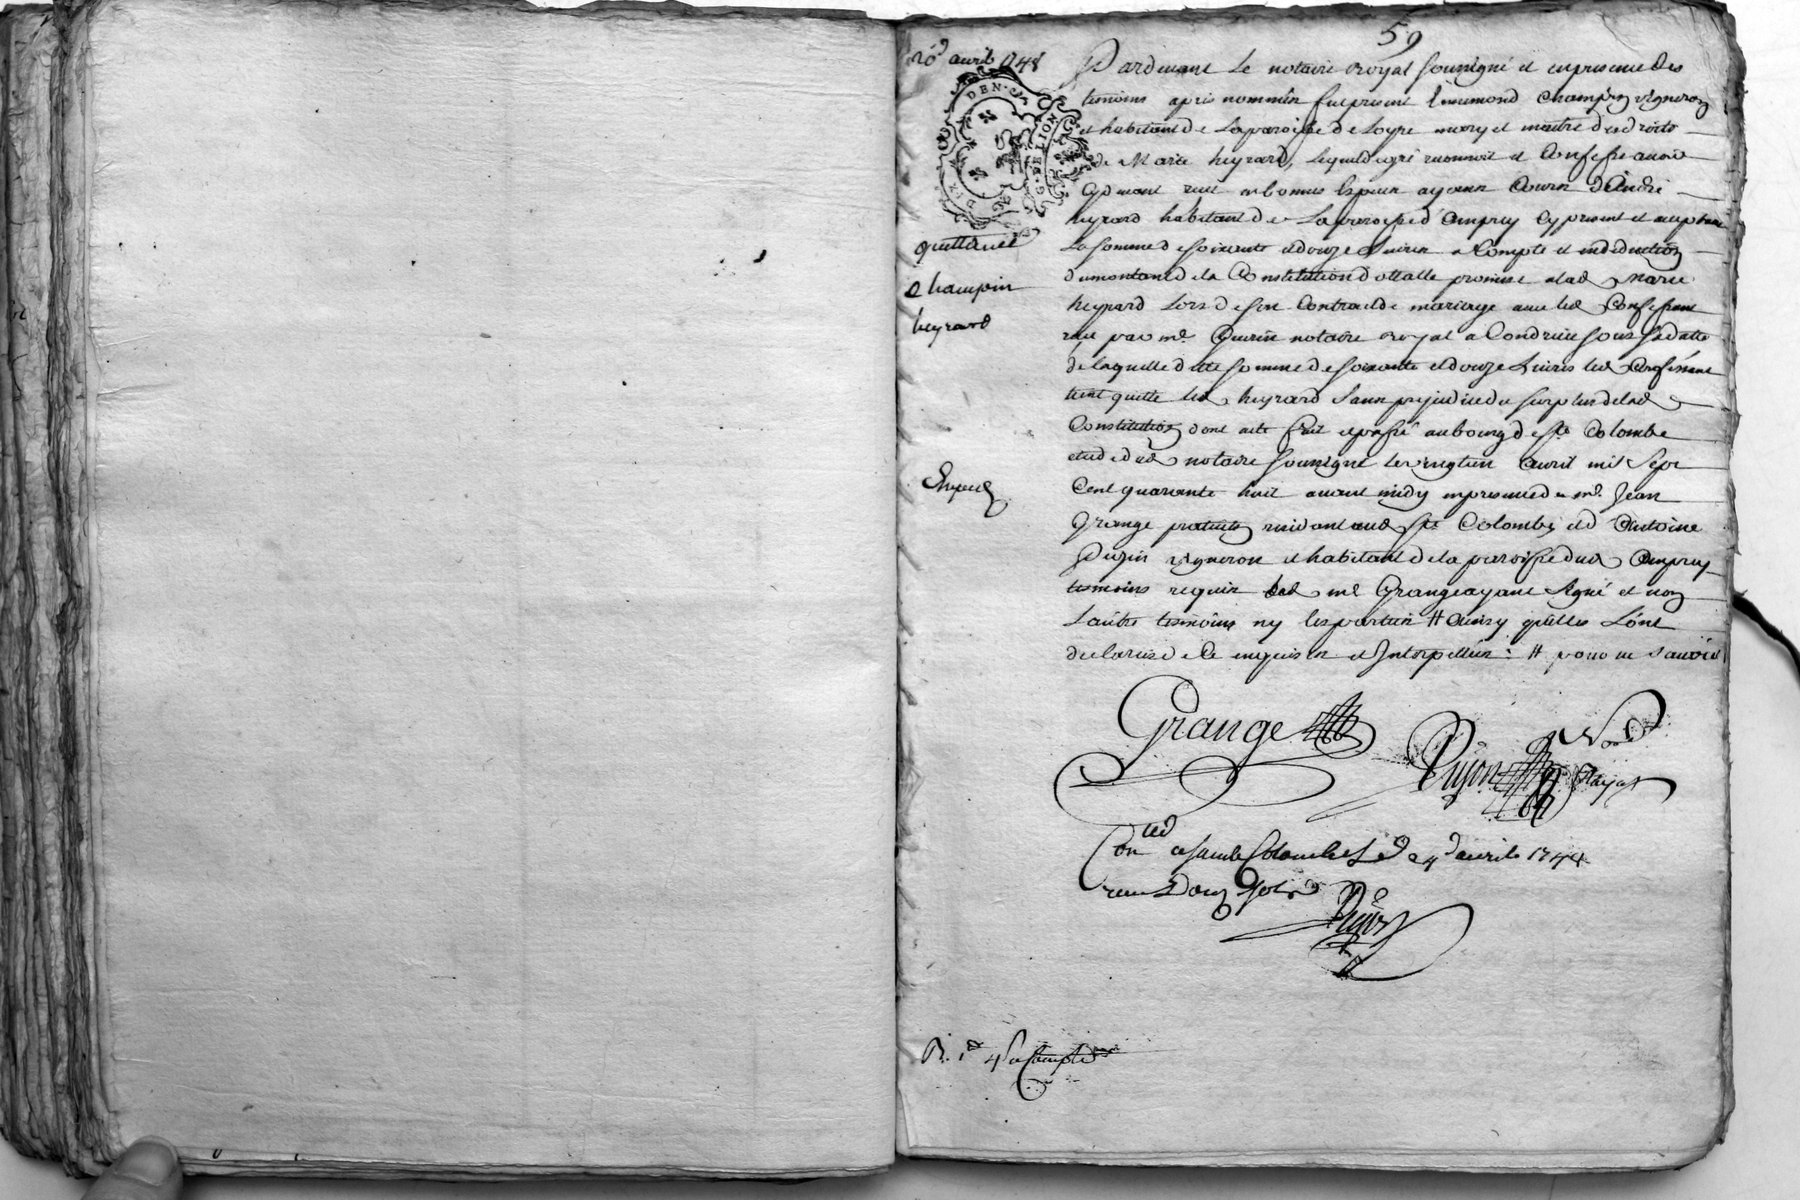 59
20e avril 1748
DEN·
G·DE LION
quittance
champin
heyrard
Expedié
Pardevant Le notaire royal soussigné et en presence des
temoins apres nommés fut present Ennemond champin vigneron
et habitant de La paroisse de Loyre mary et maitre des droits
de Marie heyrard, Lequel de gré reconnoit et Confesse avoir
cy devant reçu en bonnes Especes ayant Cours d'André
heyrard habitant de La paroisse d'Ampuy cy present et acceptant
La somme de soixante et douze Livres a Compte et en deduction
du montant de la Constitution dottalle promise a lad Marie
heyrard Lors de son Contract de mariage avec led Confessant
reçu par me Quirin notaire royal a Condrieu sous sa datte
de laquelle ditte somme de soixante et douze Livres led Confessant
tient quitte led heyrard sans prejudice du surplus de lad
Constitution dont acte fait et passé au bourg de ste Colombe
etude dud notaire soussigné le vingt un avril mil sept
Cent quarante huit avant midy en presence de me Jean
Grange praticien residant aud ste Colombe et d'Antoine
vigneron et habitant de la paroisse dud Ampuy
temoins requis led me Grange ayant signé et non
L'autre temoins ny les parties # Ainsy qu'elles L'ont
declaré de Ce enquis et Interpellés : # pour ne savoir
Grange
Dujon
Con led a sainte Colombe Le 24e avril 1748
reçu Douze sols
Dujon
R. 1er 4